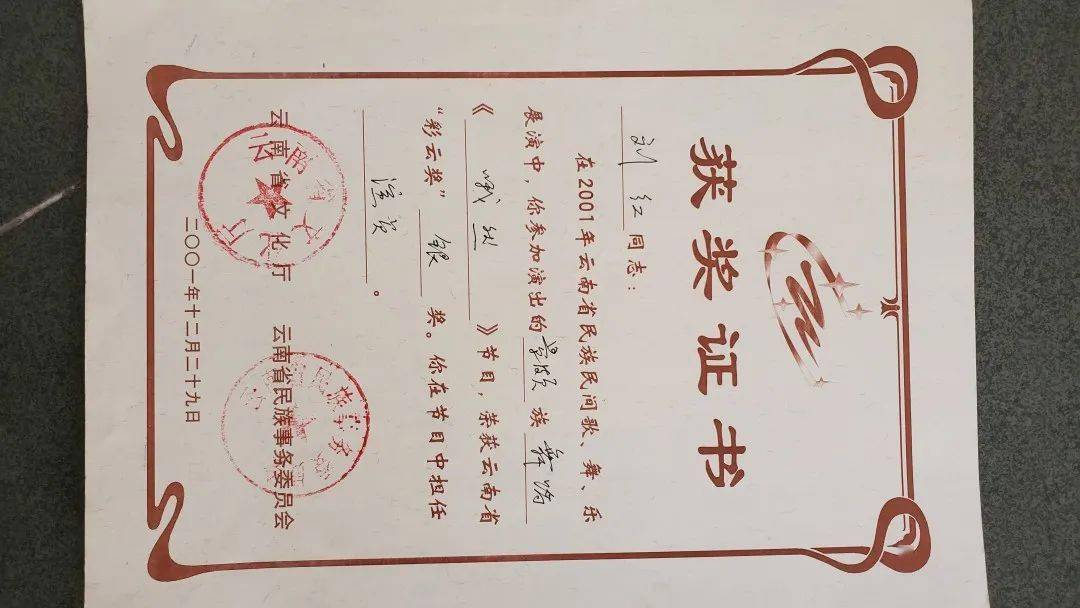 获奖证书
刘红同志：
在2001年云南省民族民间歌、舞、乐
展演中，你参加演出的景颇族舞蹈
《 》节目，荣获云南省
“彩云奖”银奖。你在节目中担任
演员。
云南省文化厅 云南省民族事务委员会
二〇〇一年十二月二十九日